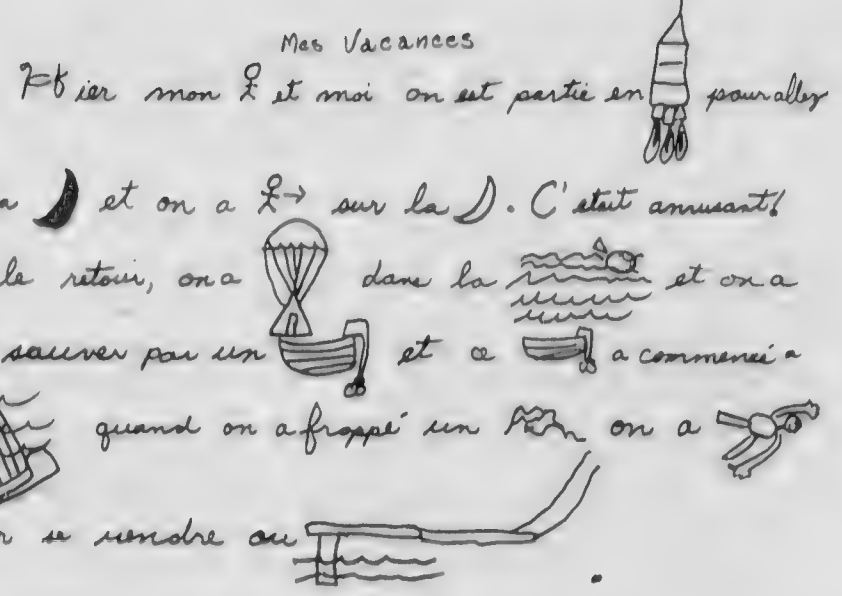 Mes Vacances
Hier mon et moi on est partie en pour aller
a et on a sur la . C'etait amusant!
le retour, on a dans la et on a
sauver par un et ce a commencé a
quand on a frappé un on a
r se rendre au .